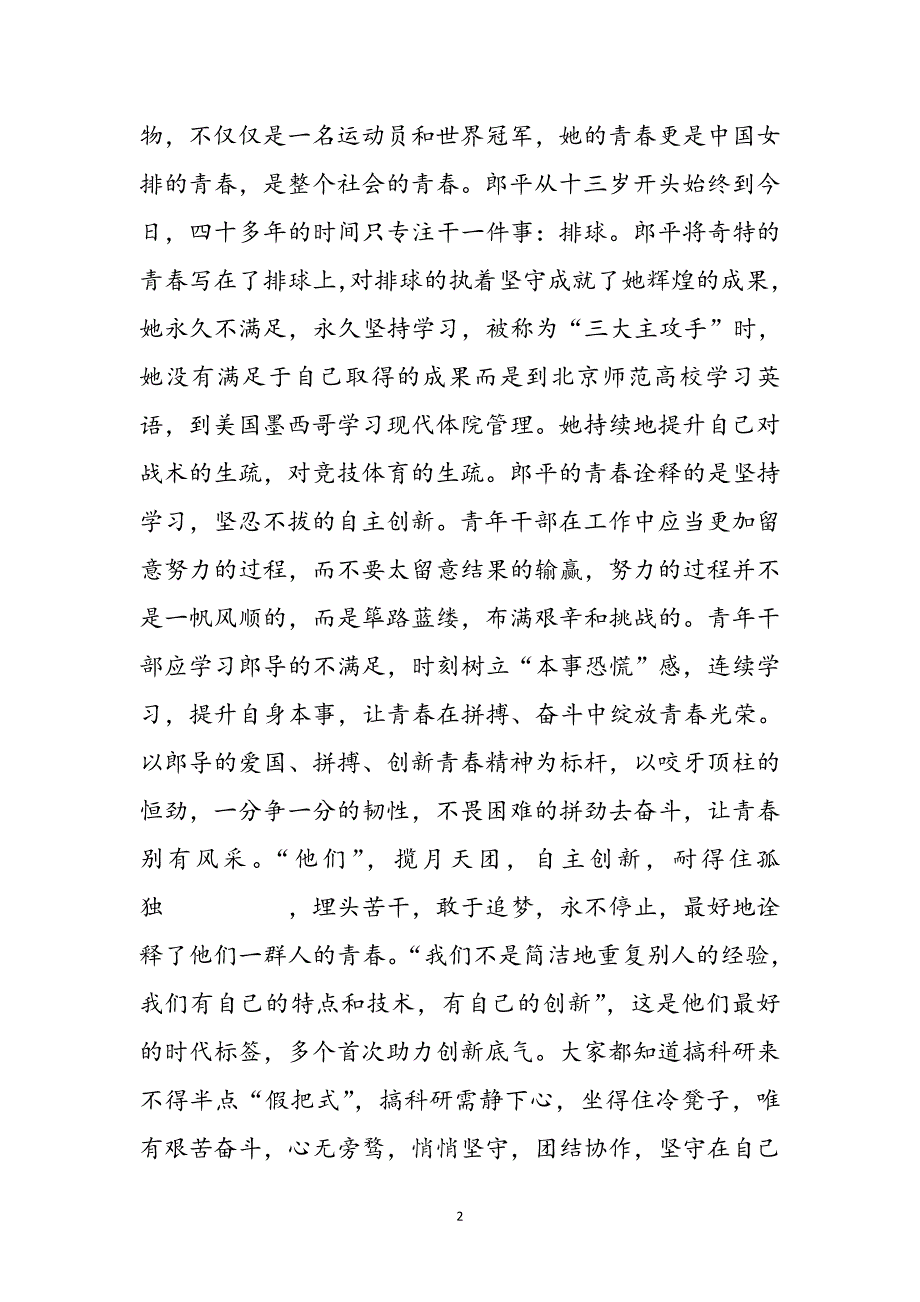 物，不仅仅是一名运动员和世界冠军，她的青春更是中国女
排的青春，是整个社会的青春。郎平从十三岁开头始终到今
日，四十多年的时间只专注干一件事：排球。郎平将奇特的
青春写在了排球上，对排球的执着坚守成就了她辉煌的成果，
她永久不满足，永久坚持学习，被称为“三大主攻手”时，
她没有满足于自己取得的成果而是到北京师范高校学习英
语，到美国墨西哥学习现代体院管理。她持续地提升自己对
战术的生疏，对竞技体育的生疏。郎平的青春诠释的是坚持
学习，坚忍不拔的自主创新。青年干部在工作中应当更加留
意努力的过程，而不要太留意结果的输赢，努力的过程并不
是一帆风顺的，而是筚路蓝缕，布满艰辛和挑战的。青年干
部应学习郎导的不满足，时刻树立“本事恐慌”感，连续学
习，提升自身本事，让青春在拼搏、奋斗中绽放青春光荣。
以郎导的爱国、拼搏、创新青春精神为标杆，以咬牙顶柱的
恒劲，一分争一分的韧性，不畏困难的拼劲去奋斗，让青春
别有风采。“他们”，揽月天团，自主创新，耐得住孤
独　　　　，埋头苦干，敢于追梦，永不停止，最好地诠
释了他们一群人的青春。“我们不是简洁地重复别人的经验，
我们有自己的特点和技术，有自己的创新”，这是他们最好
的时代标签，多个首次助力创新底气。大家都知道搞科研来
不得半点“假把式”，搞科研需静下心，坐得住冷凳子，唯
有艰苦奋斗，心无旁骛，悄悄坚守，团结协作，坚守在自己
2